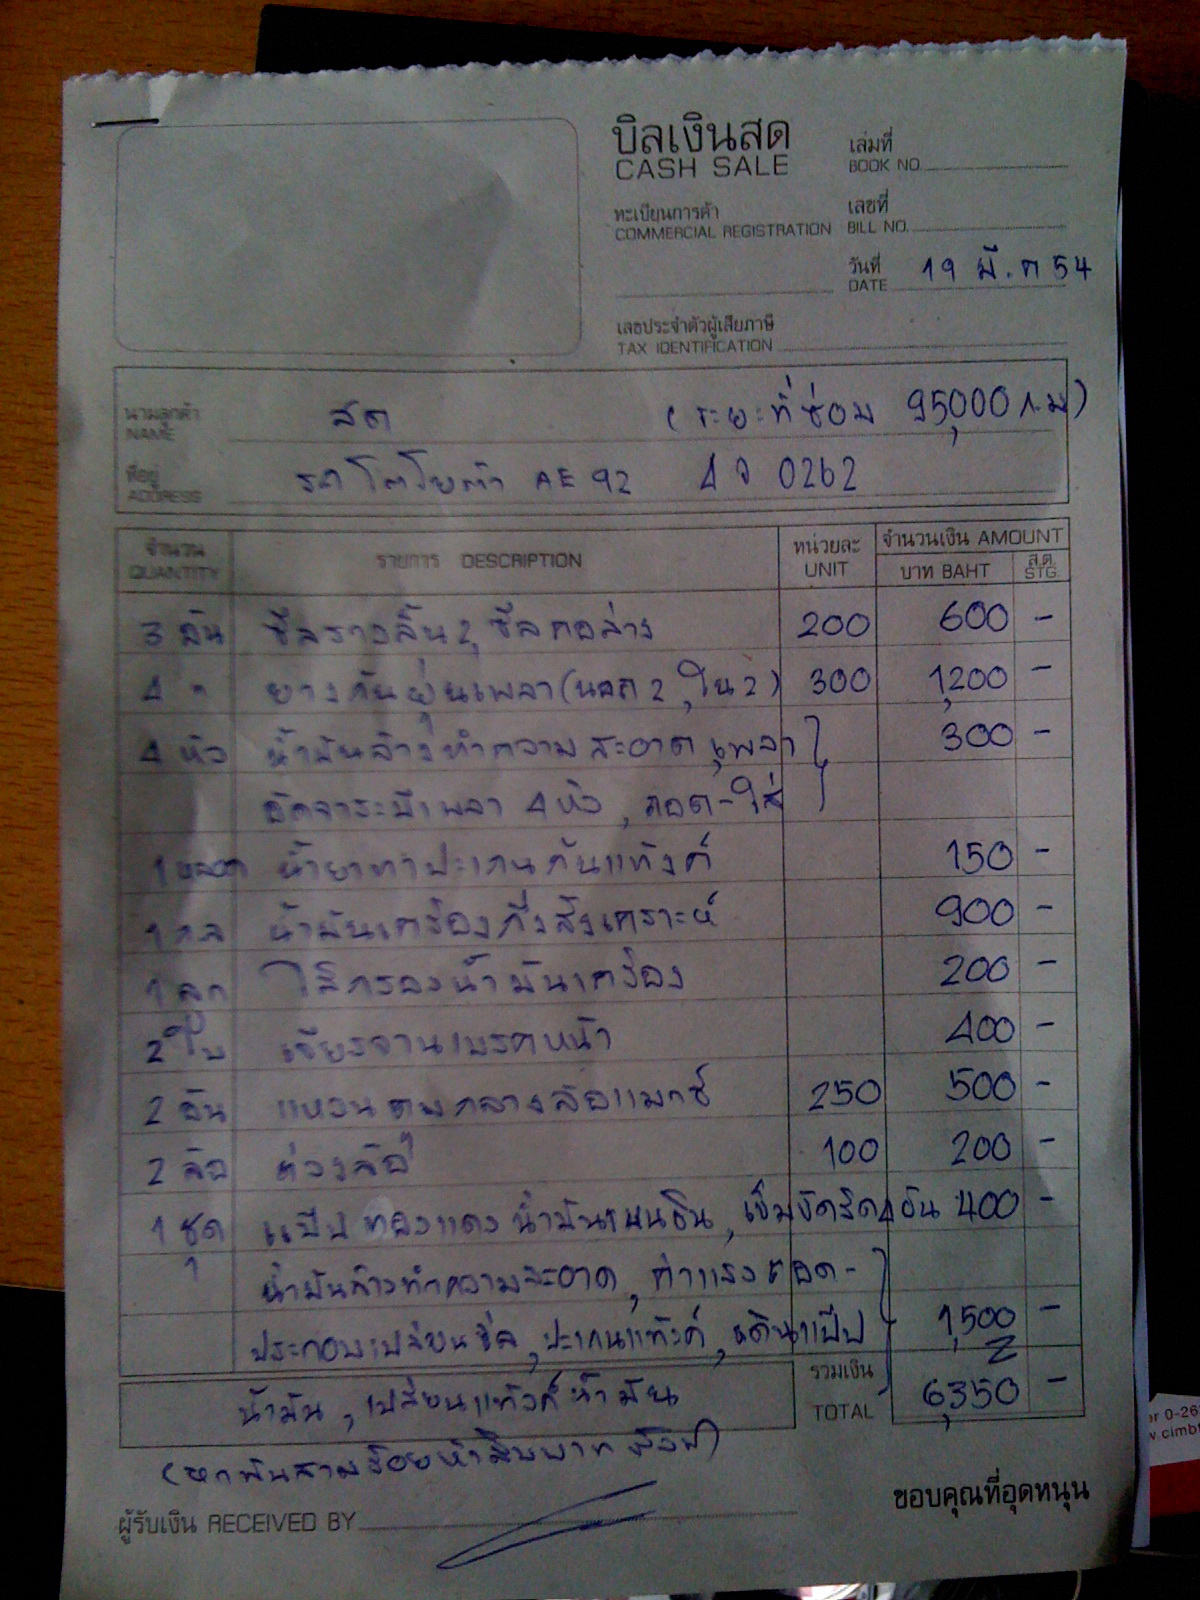 บิลเงินสด
CASH SALE
เล่มที่
BOOK NO.
ทะเบียนการค้า
COMMERCIAL REGISTRATION
เลขที่
BILL NO.
วันที่
DATE 19 มี.ค 54
เลขประจำตัวผู้เสียภาษี
TAX IDENTIFICATION
นามลูกค้า
NAME สด (ระยะที่ซ่อม 95,000 ก.ม)
ที่อยู่
ADDRESS รถโตโยต้า AE 92 4จ 0262
จำนวน
QUANTITY
รายการ DESCRIPTION
หน่วยละ
UNIT
จำนวนเงิน AMOUNT
บาท BAHT
ส.ต.
STG.
3 อัน ซีลรางลิ้น 2, ซีลคอล่าง 200 600 -
4 " ยางกันฝุ่นเพลา (นอก 2, ใน 2) 300 1,200 -
4 หัว น้ำมันล้างทำความสะอาด เพลา 300 -
อัดจาระบีเพลา 4 หัว, ถอด-ใส่
1 หลอด น้ำยาทาปะเกนก้นแท้งค์ 150 -
1 กล น้ำมันเครื่องกึ่งสังเคราะห์ 900 -
1 ลูก ไส้กรองน้ำมันเครื่อง 200 -
2 ใบ เจียรจานเบรคหน้า 400 -
2 อัน แหวนตมกลางล้อแมกซ์ 250 500 -
2 ล้อ ถ่วงล้อ 100 200 -
1 ชุด แป๊ปทองแดงน้ำมันเบนซิน, เข็มขัดรัด 4 อัน 400 -
น้ำมันล้างทำความสะอาด, ค่าแรงถอด-
ประกอบเปลี่ยนซีล, ปะเกนแท้งค์, เดินแป๊ป 1,500 -
น้ำมัน, เปลี่ยนแท้งค์น้ำมัน
รวมเงิน
TOTAL 6,350 -
(หกพันสามร้อยห้าสิบบาทถ้วน)
ผู้รับเงิน RECEIVED BY
ขอบคุณที่อุดหนุน